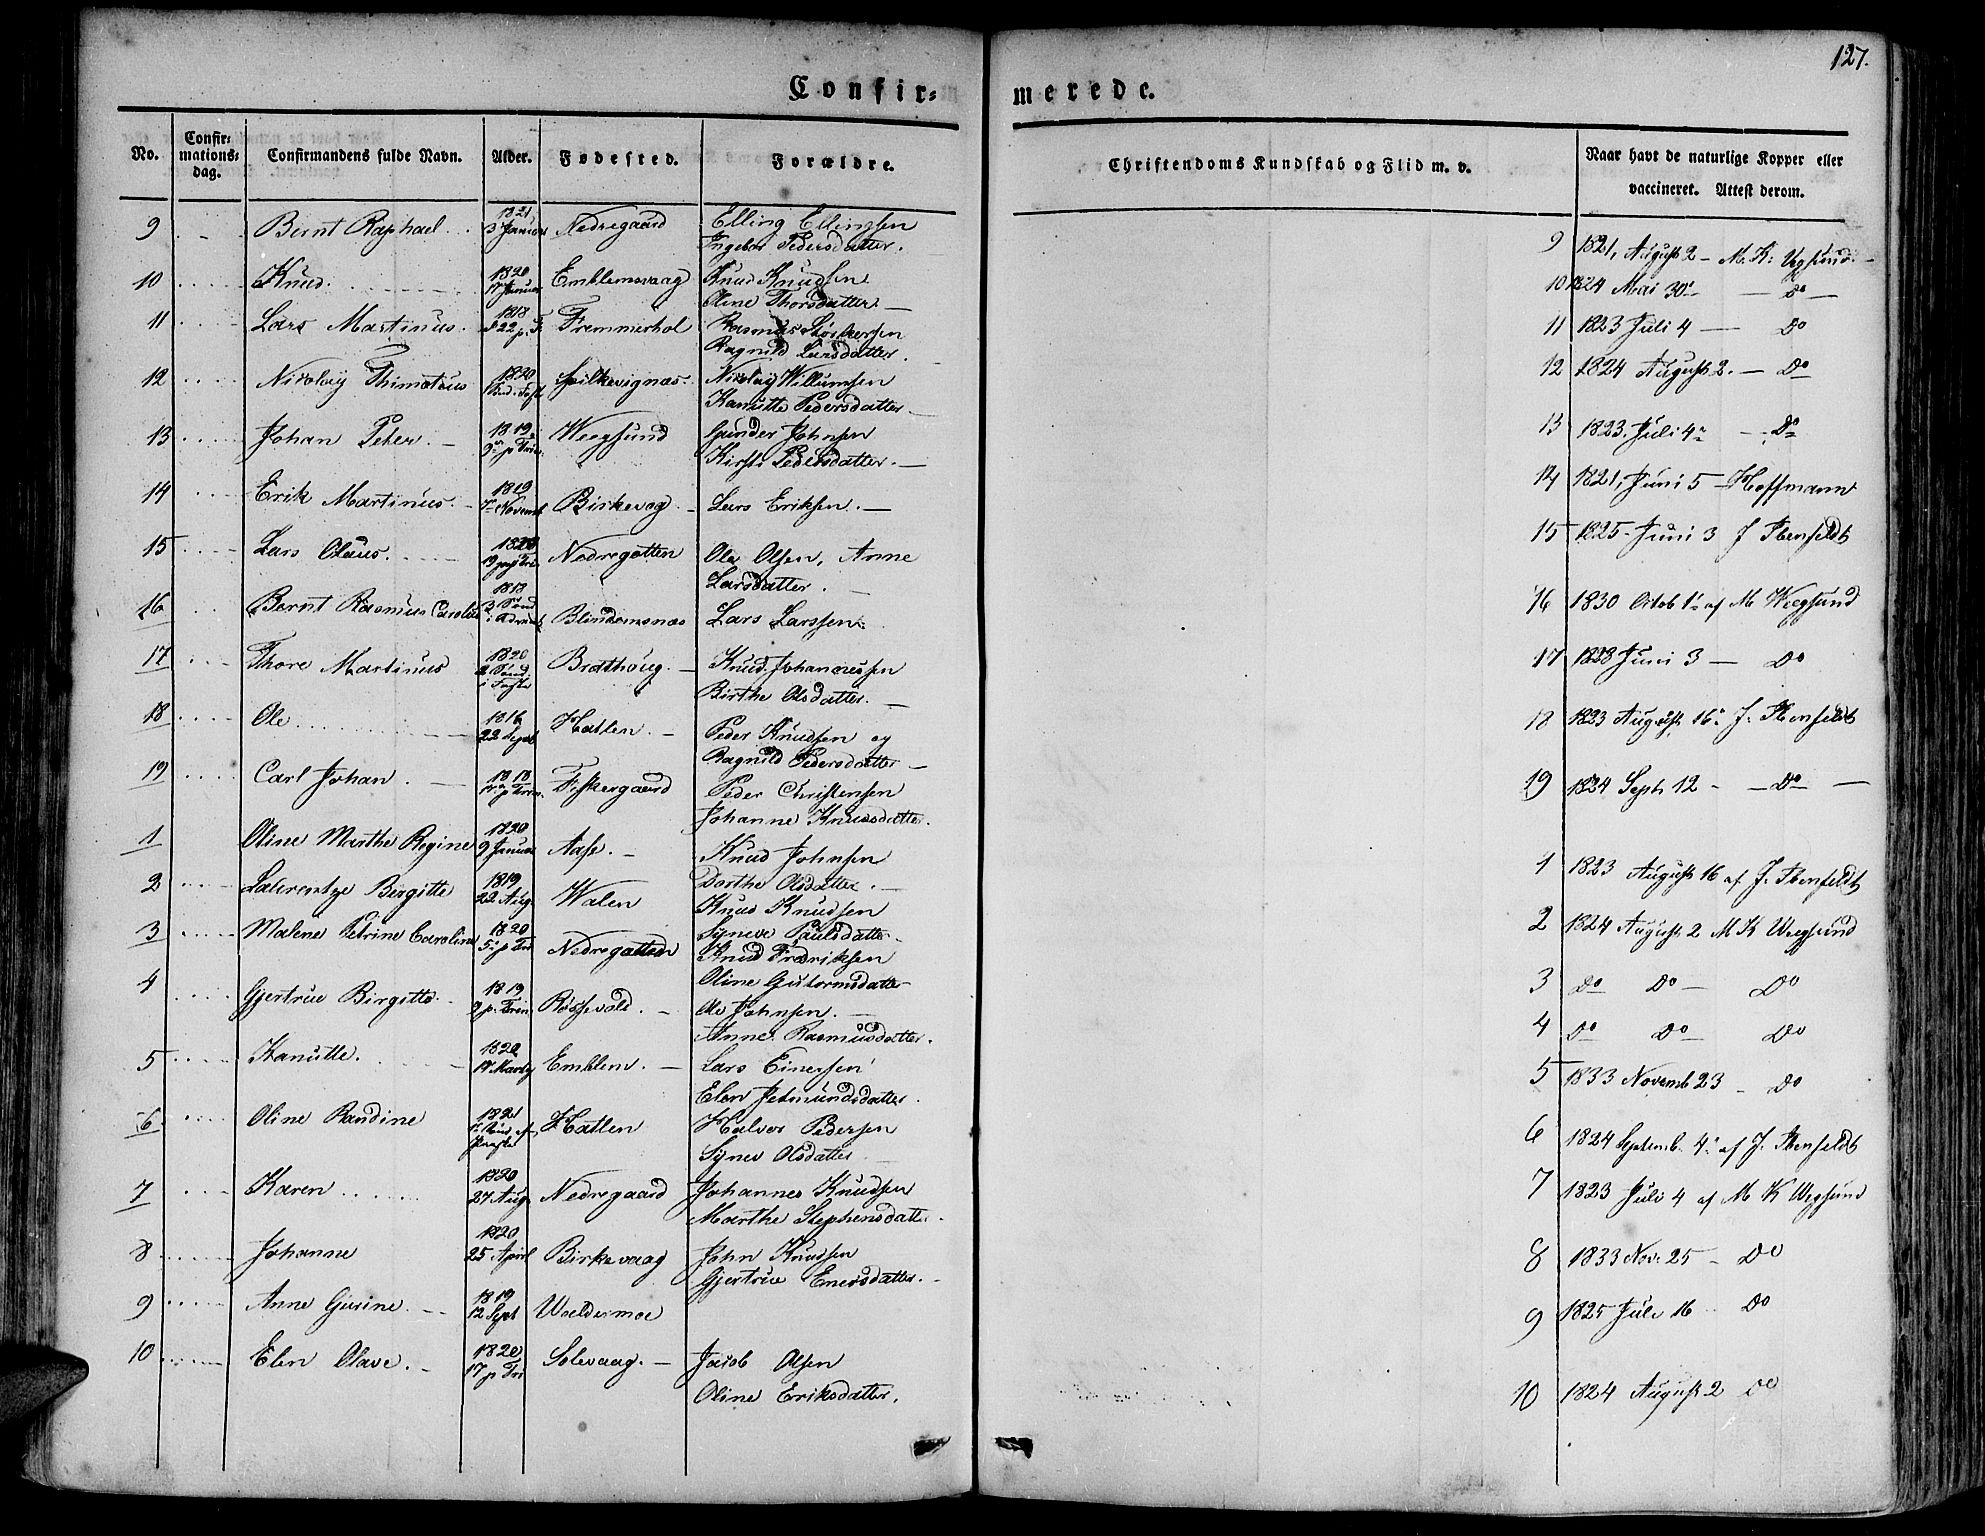 127.
Confir=
merede.
No.
Confir=
mations=
dag.
Confirmandens fulde Navn.
Alder.
Fødested.
Forældre.
Christendoms Kundskab og Flid m. v.
Naar havt de naturlige Kopper eller
vaccineret. Attest derom.
9 Bernt Raphael 1821 3 Januar Nedregaard Elling Ellingsen
Ingebor Pedersdatter.
9 1821, August 2 – M. K: Vegsund.
10 Knud 1820 17 Januar Emblemsvaag Knud Knudsen
Oline Thorsdatter
10 1824 Mai 30 – Do
11 Lars Martinus 1818 d 22 p. T. Fremmerhol Rasmus
Ragnild Larsdatter
11 1823 Juli 4 – Do
12 Nicolay Thimoteus 1820 Nicolay Willumsen
Kanutte Pedersdatter
12 1824 August 2. – Do
13 Johan Peter 1819 9 p Trin. Weegsund Gunder Johnsen
Kirsti Pedersdatter
13 1823 Juli 4 – Do
14 Erik Martinus 1819 7 Novemb Birkevog Lars Eriksen
14 1821, Juni 5 – Hoffmann
15 Lars Olaus 1820 19 Nedregotten Ole Olsen, Anne
Larsdatter
15 1825 Juni 3 J Ibenfeldt
16 Bernt Rasmus Carolus 1818 3 Sønd i Advent Blindemsnæs Lars Larssen
16 1830 Octob 1 af M Weegsund
17 Thore Martinus 1820 2 Sønd i Faste Brathoug Knud Johannessen
Birthe Olsdatter
17 1828 Juni 3 – Do
18 Ole 1816 22 Sept Hatlen Peder Knudsen og
Ragnild Pedersdatter
18 1823 August 16 J. Ibenfeldt
19 Carl Johan 1818 p Trin. Fiskergaard Peder Christensen
Johanne Knudsdatter.
19 1824 Sept 12 – Do
1 Oline Marthe Regine 1820 9 Januar Aase Knud Johnsen
Dorthe Olsdatter
1 1823 August 16 af J. Ibenfeldt
2 Laurentze Bergitte 1819 22 Aug Walen Knud Knudsen
Syneve Paulsdatter
2 1824 August 2 M K Wegsund
3 Malene Petrine Caroline 1820 5 p Tri Nedregotten Knud Fredriksen
Oline Guttormsdatter
3 Do Do – Do
4 Gjertrue Birgitte 1819 9 p. Trin. Røssevold Ole Johnsen
Anne Rasmusdatter.
4 Do Do Do
5 Kanutte 1820 17 Marty Emblem Lars Einersen
Elen Jetmundsdatter
5 1833 Novemb 23 – Do
6 Oline Randine 1821 Hatlen Halvor Pedersen
Synev Olsdatter
6 1824 Septemb. 4 af J. Ibenfeldt
7 Karen 1820 27 Aug Nedregaard Johannes Knudsen
Marthe Stephensdatter
7 1823 Juli 4 af M K Wegsund
8 Johanne 1820 25 April Birkevaag John Knudsen
Gjertrue Enersdatter
8 1833 Nov: 25 – Do
9 Anne Gurine 1819 12 Sept Waldermoe
9 1825 Juli 16 Do
10 Elen Olave 1820 17 p Tri Solevaag Jacob Olsen
Oline Eriksdatter.
10 1824 August 2 Do